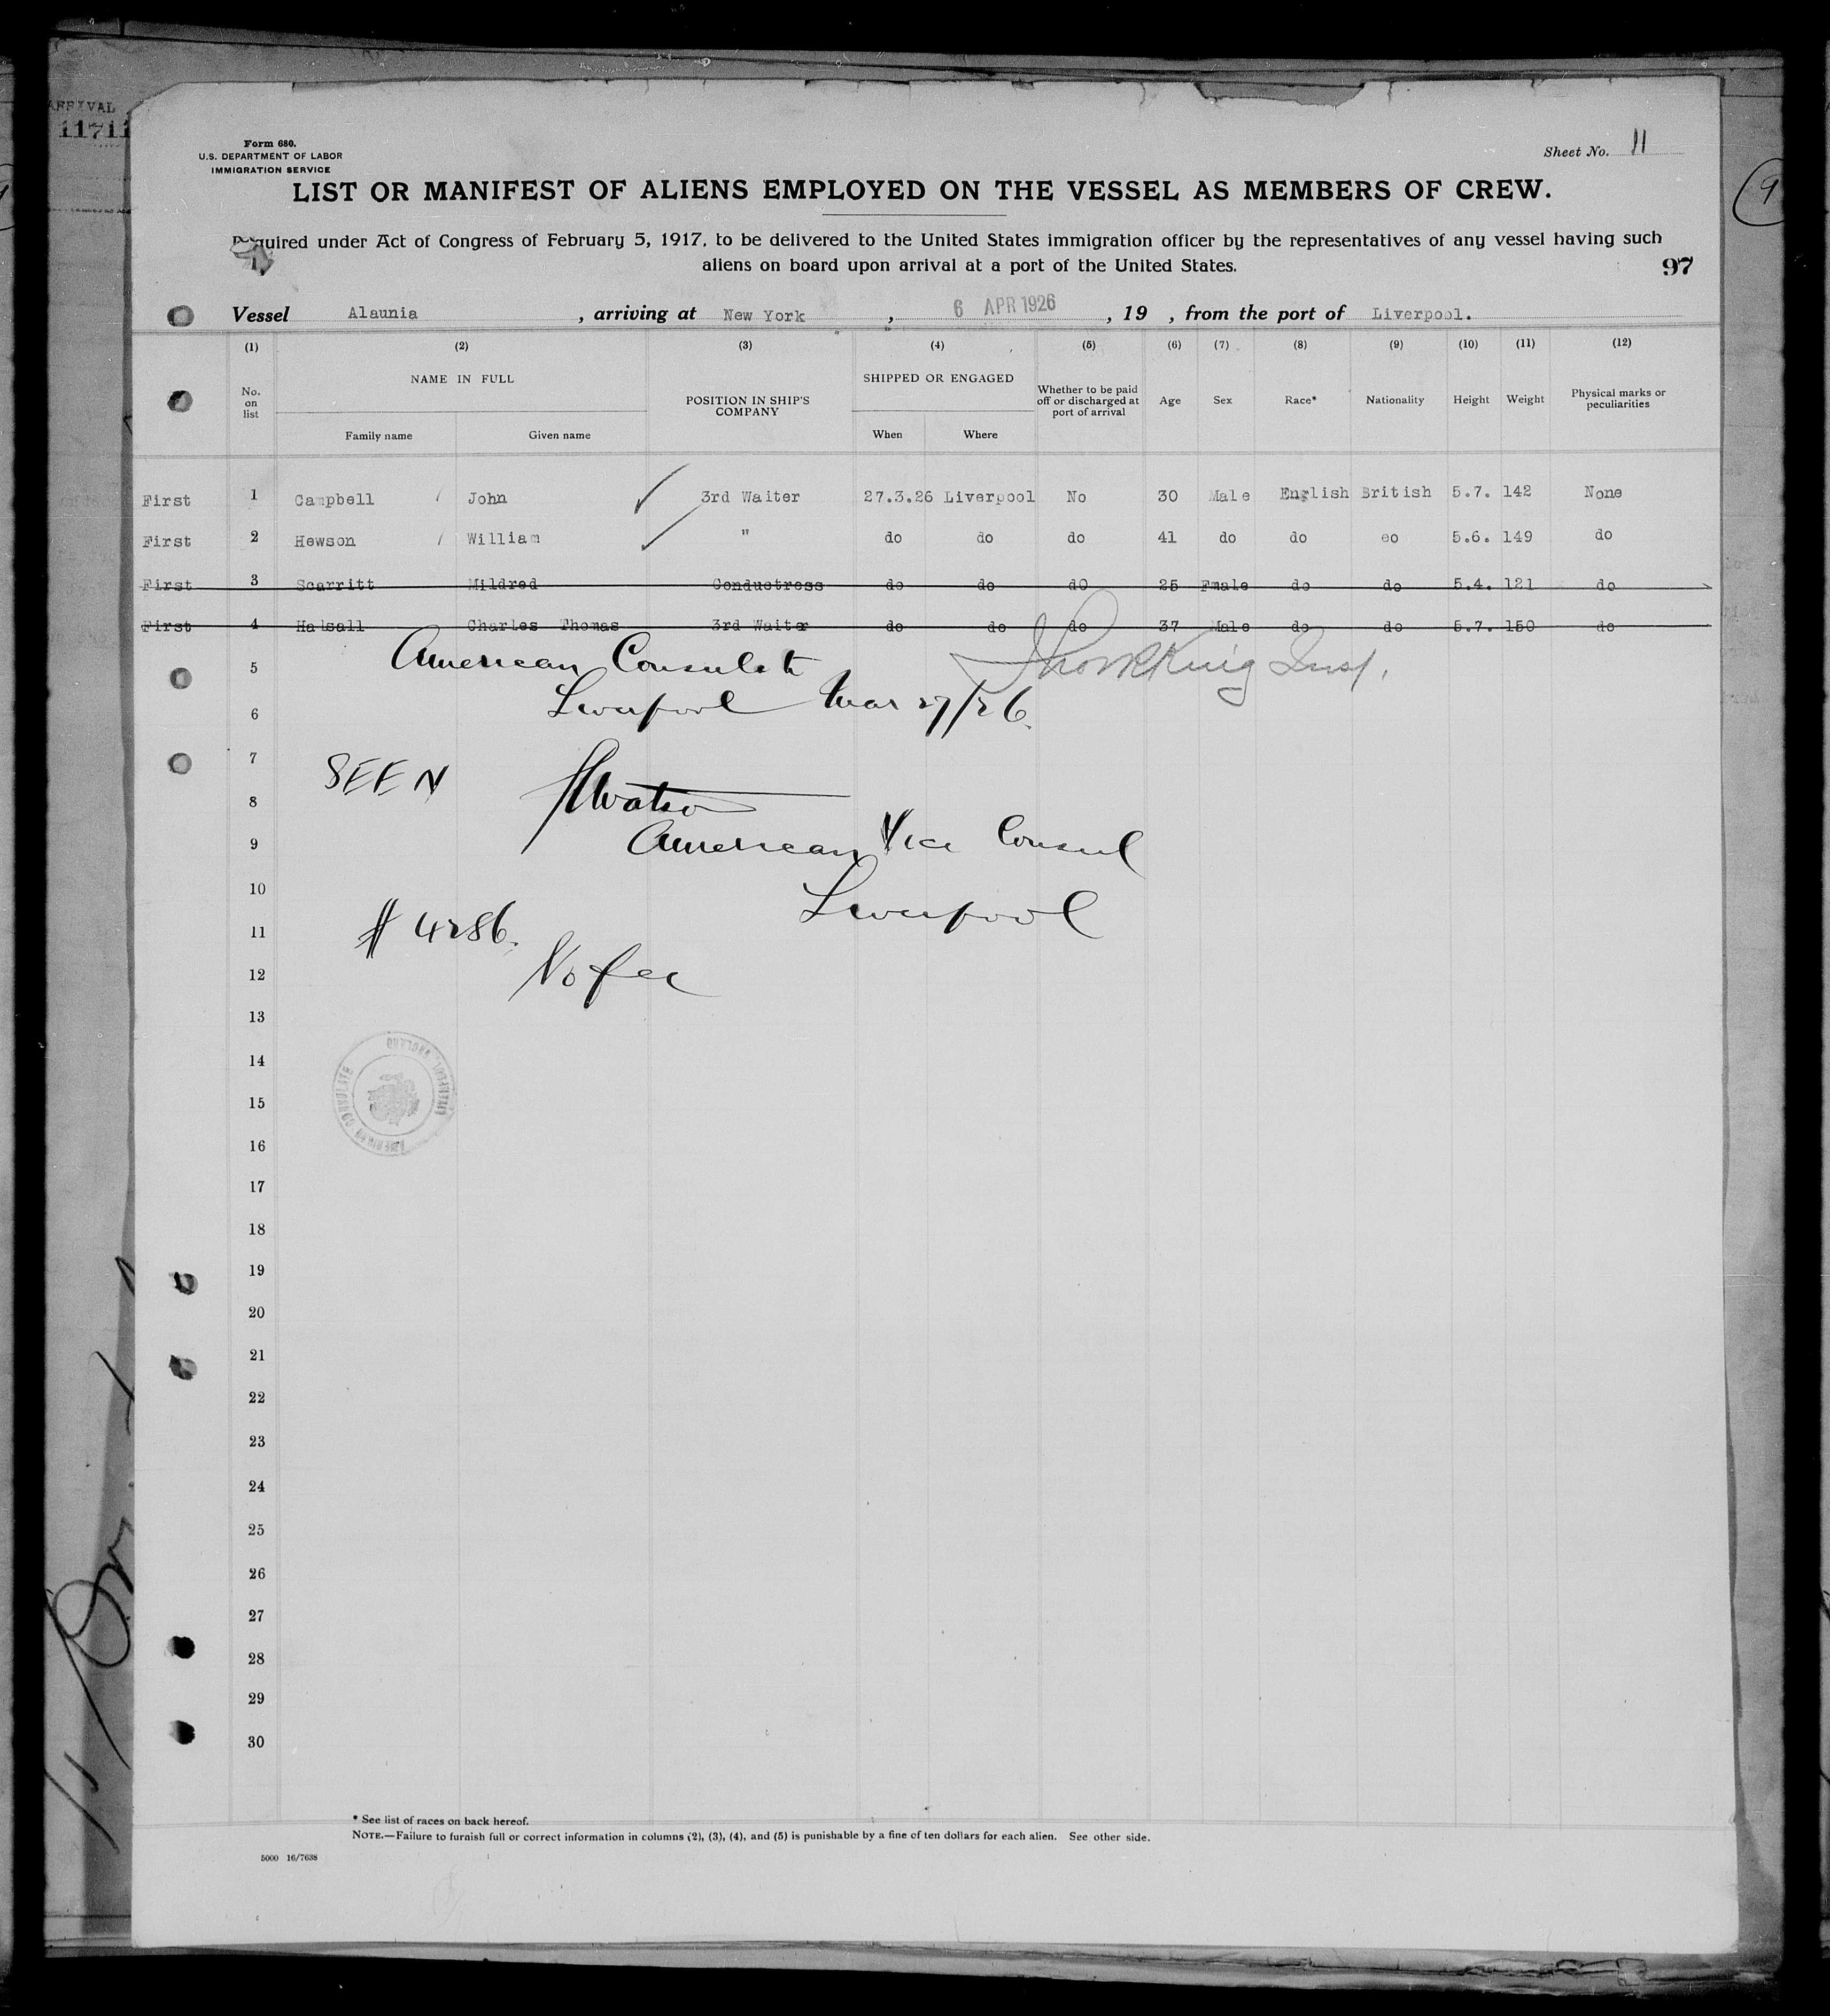 ARRIVAL
11711
Form 680.
U.S. DEPARTMENT OF LABOR
IMMIGRATION SERVICE
Sheet No. 11
LIST OR MANIFEST OF ALIENS EMPLOYED ON THE VESSEL AS MEMBERS OF CREW.
Required under Act of Congress of February 5, 1917, to be delivered to the United States immigration officer by the representatives of any vessel having such
aliens on board upon arrival at a port of the United States.
97
Vessel Alaunia , arriving at New York , 6 APR 1926 , 19 , from the port of Liverpool.
(1) (2) (3) (4) (5) (6) (7) (8) (9) (10) (11) (12)
No. on list NAME IN FULL Family name Given name POSITION IN SHIP'S COMPANY SHIPPED OR ENGAGED When Where Whether to be paid off or discharged at port of arrival Age Sex Race* Nationality Height Weight Physical marks or peculiarities
First 1 Campbell John 3rd Waiter 27.3.26 Liverpool No 30 Male English British 5.7. 142 None
First 2 Hewson William " do do do 41 do do eo 5.6. 149 do
First 3 Scarritt Mildred Conductress do do dO 25 Fmale do do 5.4. 121 do
First 4 Halsall Charles Thomas 3rd Waiter do do do 37 Male do do 5.7. 150 do
5 American Consulate King Insp.
6 Liverpool Mar 27/26.
7 SEEN
8 Watson
9 American Vice Consul
10 Liverpool
11 # 4286.
12 No fee
13
14
AMERICAN CONSULATE LIVERPOOL, ENGLAND
15
16
17
18
19
20
21
22
23
24
25
26
27
28
29
30
* See list of races on back hereof.
NOTE.—Failure to furnish full or correct information in columns (2), (3), (4), and (5) is punishable by a fine of ten dollars for each alien. See other side.
5000 16/7638